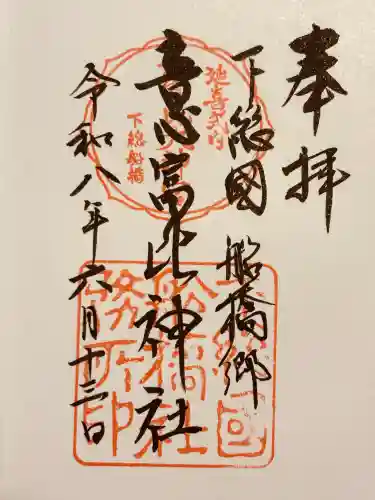 奉拝
下総國 船橋郷
意富比神社
令和八年六月十三日
延喜式内
下総船橋